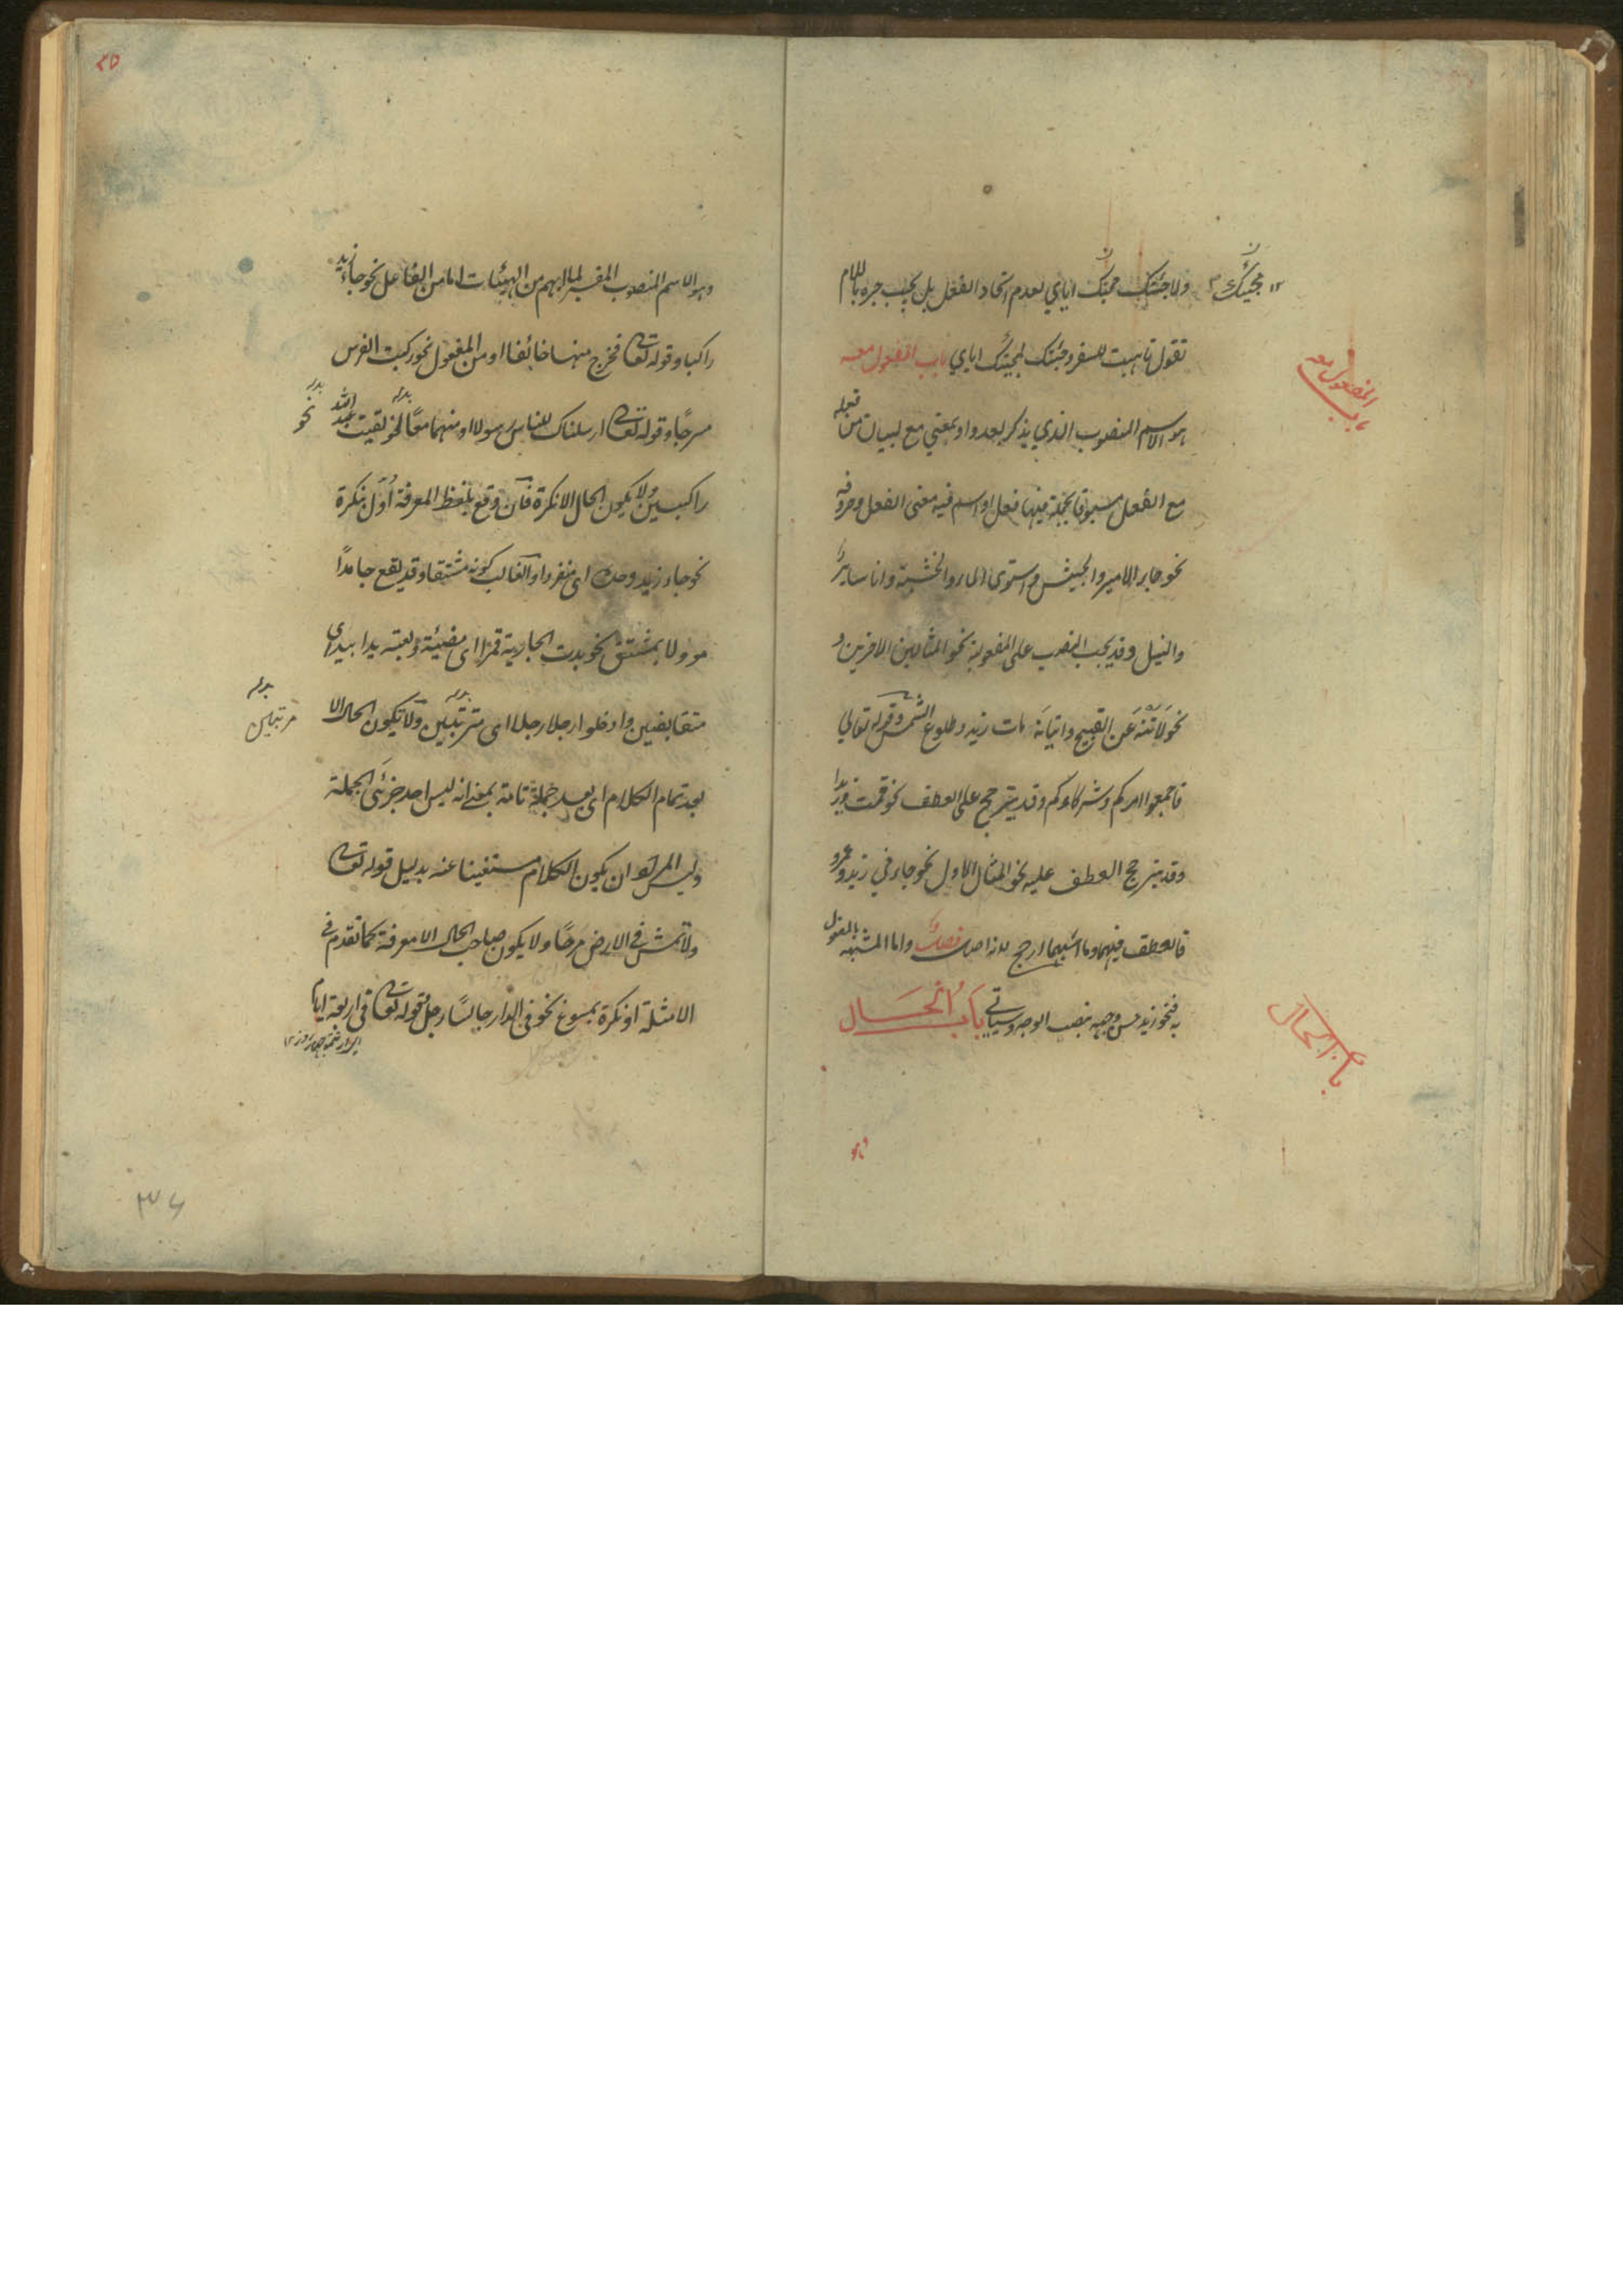 ولا جئتك محبتك اياي لعدم اتحاد الفعل بل يجب جره باللام
تقول تاهبت للسفر وجئتك لمجيئك اياي باب المفعول معه
هو الاسم المنصوب الذي يذكر بعد واو بمعني مع لبيان من فعله
مع الفعل مسبوقا بجملة فيها فعل او اسم فيه معنى الفعل وحروفه
نحو جاء الامير والجيش واستوى الماء والخشبة وانا سائر
والنيل وقد يجب النصب على المفعولية نحو المثالين الاخيرين و
نحو لاتنه عن القبيح واتيانه مات زيد وطلوع الشمس وقوله تعالي
فاجمعوا امركم وشركاءكم وقد يترجح على العطف نحو قمت وزيدا
وقد يترجح العطف عليه نحو المثال الاول نحو جاءني زيد وعمرو
فالعطف فيهما وما اشبهها ارجح لانه اصل فصل واما المشبه بالمفعول
به فنحو زيد حسن وجهه بنصب الوجه وسياتي باب الحال
مجيئك
المفعول معه
باب
باب الحال
وهو
٢٥
وهو الاسم المنصوب المفسر لما ابهم من الهيئات اما من الفاعل نحو جاء زيد
راكبا وقوله تعالى فخرج منها خائفا او من المفعول نحو ركبت الفرس
مسرجا وقوله تعالى ارسلناك للناس رسولا او منهما معا نحو لقيت عبد الله
راكبين ولا يكون الحال الا نكرة فان وقع بلفظ المعرفة اول بنكرة
نحو جاء زيد وحده اى منفردا والغالب كونه مشتقا وقد يقع جامدا
موولا بمشتق نحو بدت الجارية قمرا اى مضيئة وبعته يدا بيد اى
متقابضين وادخلوا رجلا رجلا اى مترتبين ولا يكون الحال الا
بعد تمام الكلام اى بعد جملة تامة بمعنى انه ليس احد جزئي الجملة
وليس المراد ان يكون الكلام مستغنيا عنه بدليل قوله تعالى
ولا تمش في الارض مرحا ولا يكون صاحب الحال الا معرفة كما تقدم في
الامثلة او نكرة بمسوغ نحو في الدار جالسا رجل وقوله تعالى في اربعة ايام
نحو
مرتبين
٣٤